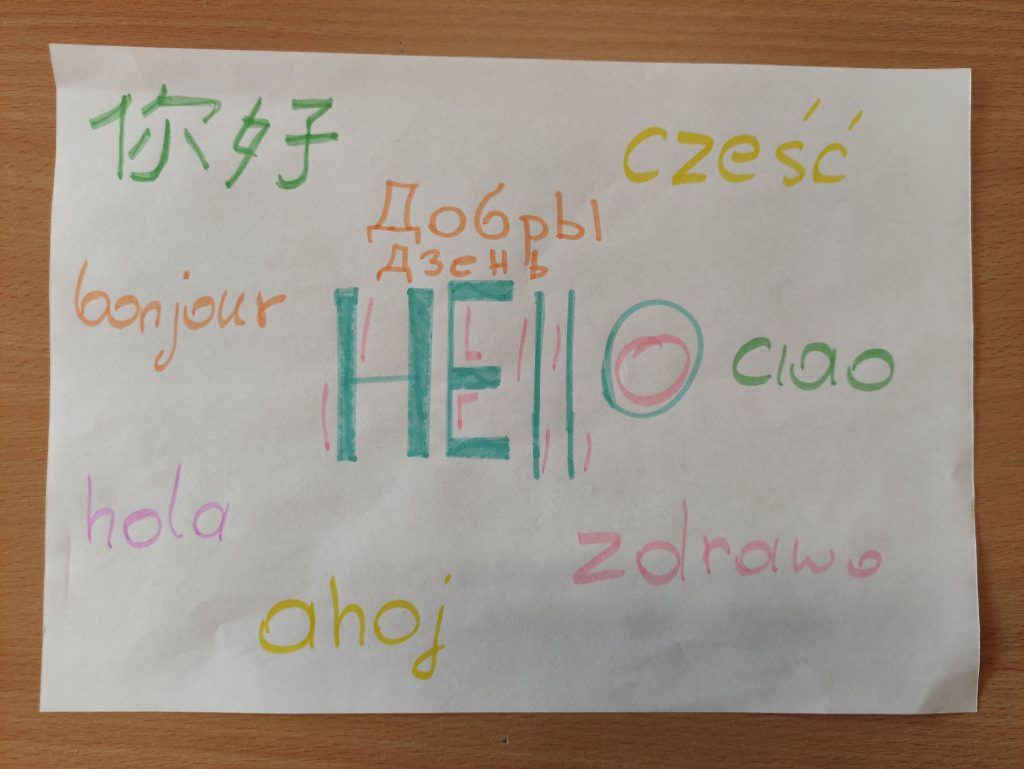 你好
cześć
Добры
дзень
bonjour
HEllO
ciao
hola
zdrawo
ahoj